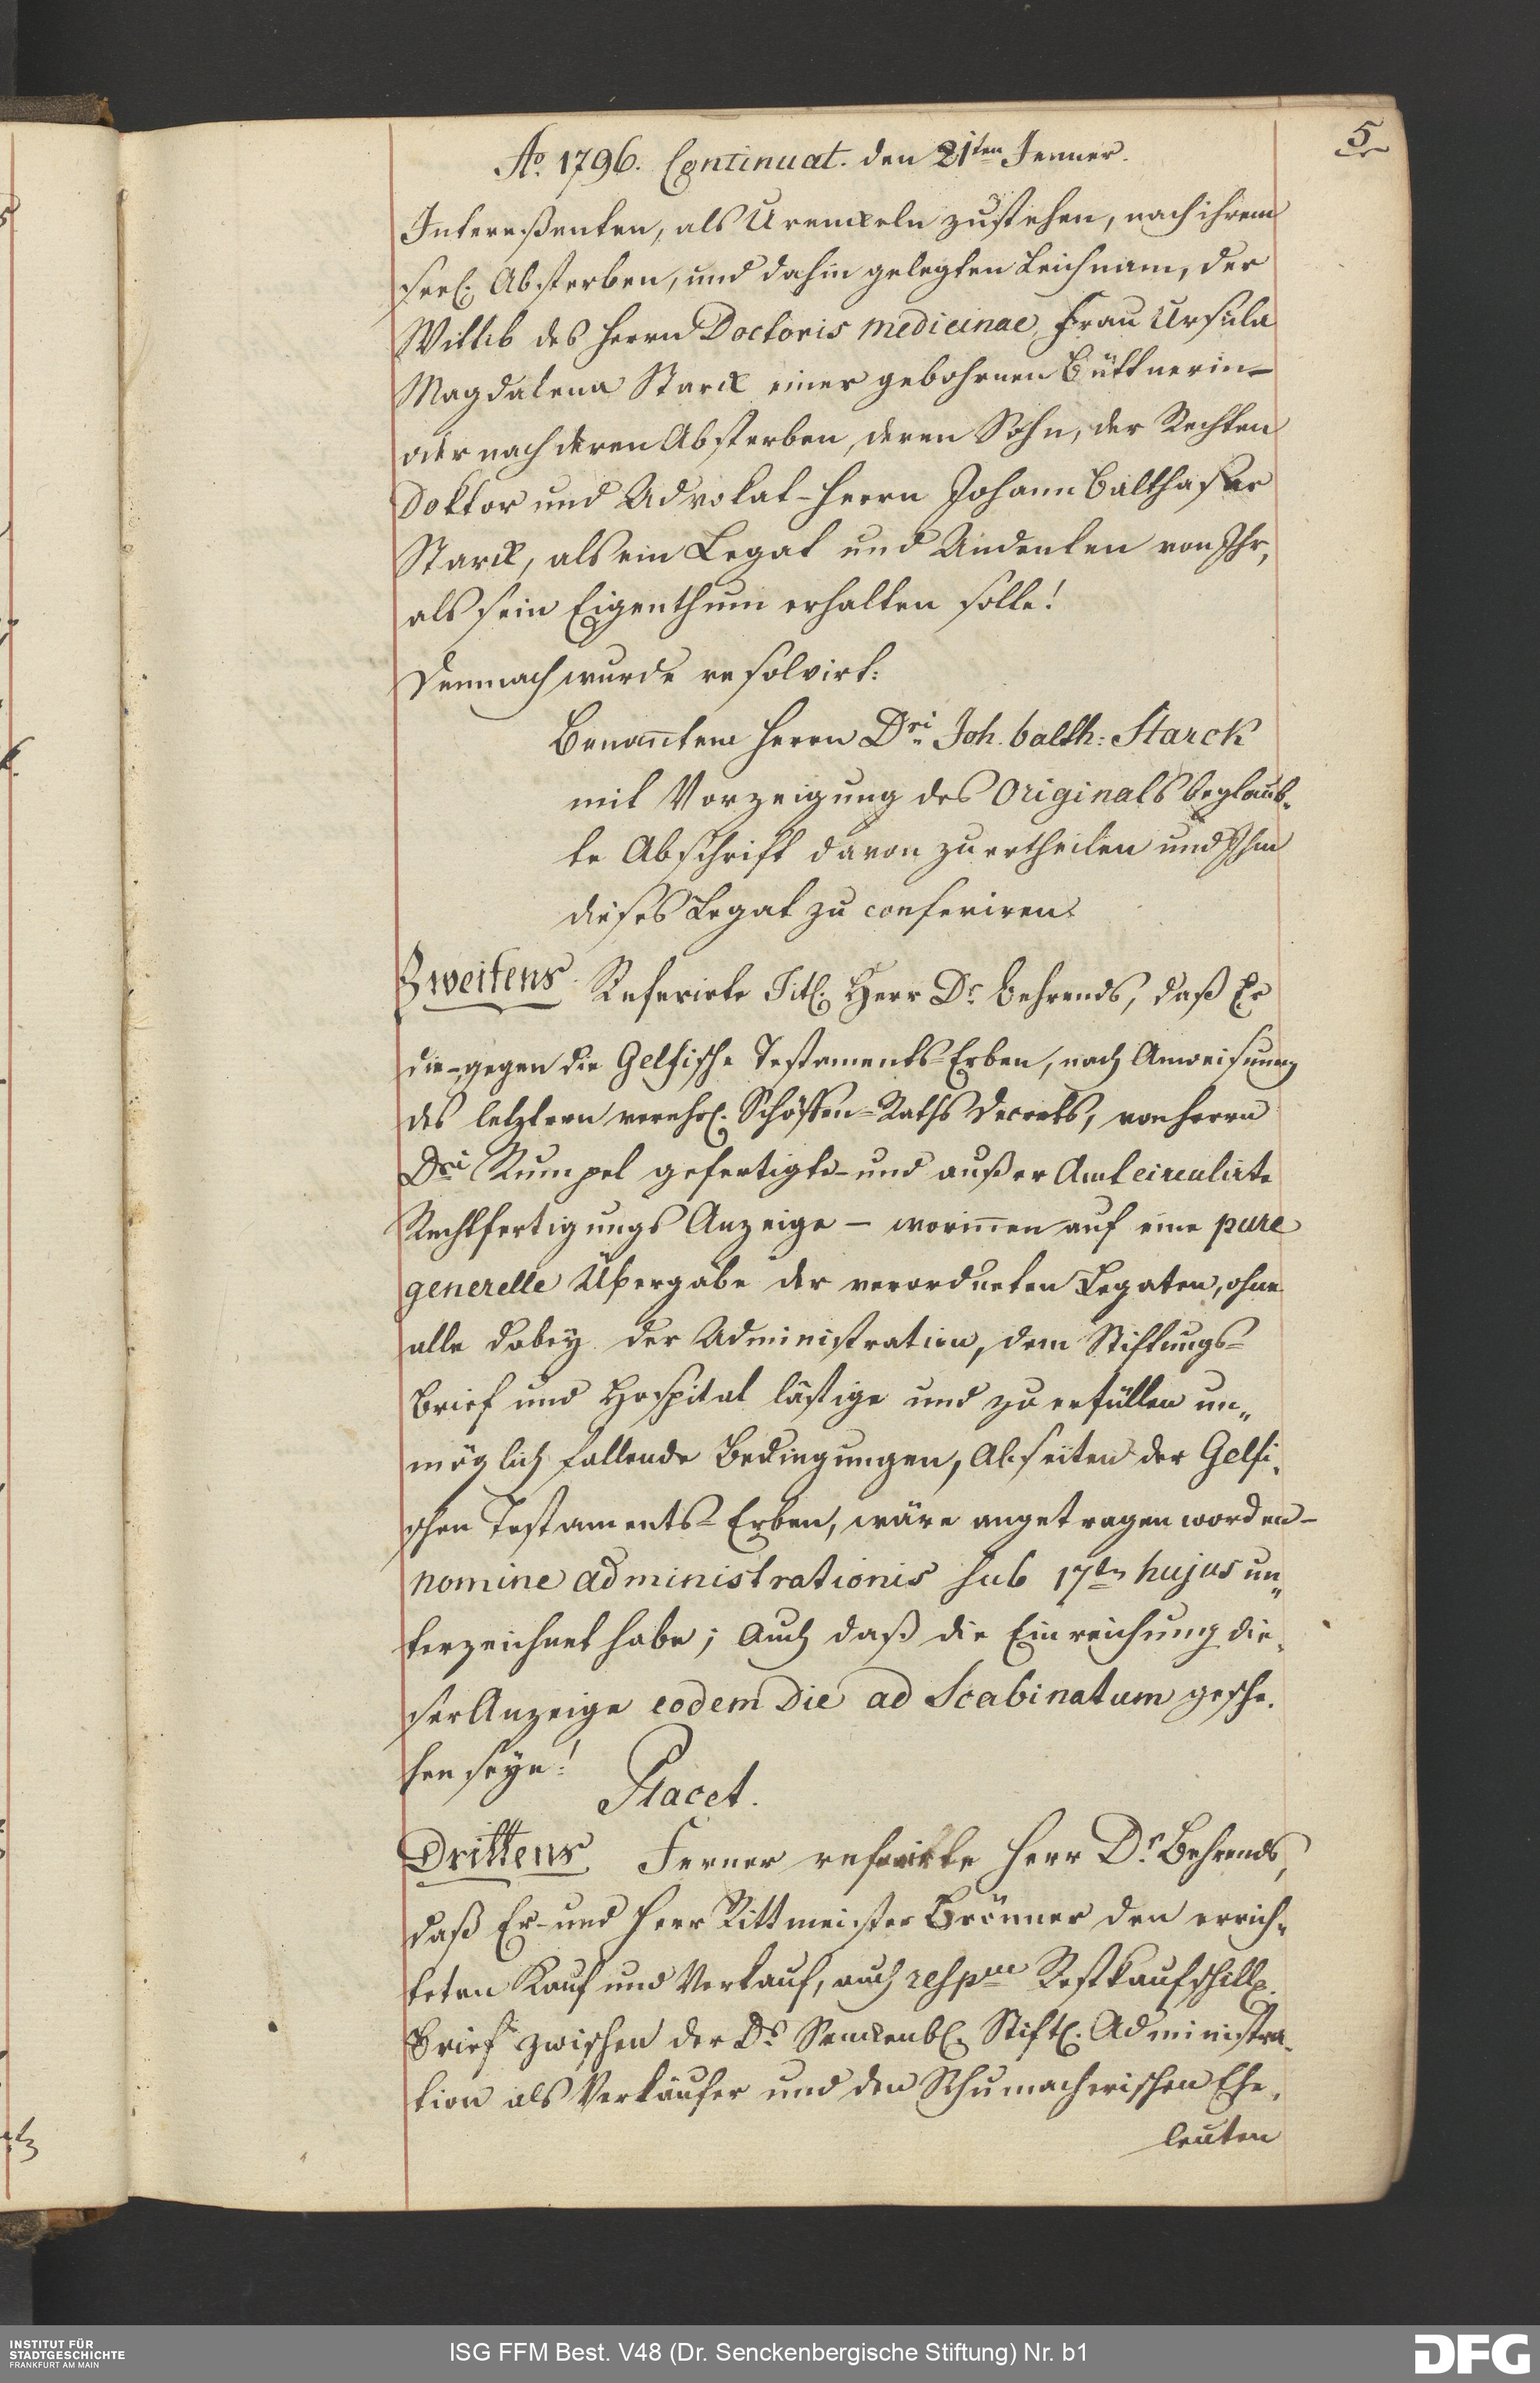 5
Ao. 1796. Continuat. den 21ten Jenner.
Intereßenten, als Urenckeln zustehen, nach ihrem
seel. Absterben, und dahin gelegten Leichnam, der
Wittib des Herrn Doctoris medicinae, Frau Ursula
Magdalena Starck einer gebohrnen Büttnerin–
oder nach deren Absterben, deren Sohn, der Rechten
Doktor und Advokat-Herrn Johann Balthasar
Starck, als ein Legat und Andenken von Ihr,
als sein Eigenthum erhalten solle!
Demnach wurde resolvirt:
Benanntem Herrn Dri Joh. balth: Starck
mit Vorzeigung des Originals beglaub-
te Abschrift davon zu ertheilen und Ihm
dieses Legat zu conferiren.
Zweitens. Referirte Titl. Herr Dr. Behrends, daß Er
die-gegen die Gelfische Testaments-Erben, nach Anweisung
des letztern verehrl. Schöffen-Raths Decrets, von Herrn
Dri Rumpel gefertigte-und außer Amt circulirte
Rechtfertigungs Anzeige – worinnen auf eine pure
generelle Übergabe der verordneten Legaten, ohne
alle dabey der Administration, dem Stiftungs=
Brief und Hospital lästige und zu erfüllen un„
möglich fallende Bedingungen, Abseiten der Gelfi-
schen Testaments=Erben, wäre angetragen worden–
nomine administrationis sub 17ten hujus un„
terzeichnet habe; Auch daß die Einreichung die-
ser Anzeige eodem Die ad Scabinatum gesche-
hen seye!
Placet.
Drittens Ferner referirte Herr Dr. Behrends,
daß Er-und Herr Rittmeister Brönner den errich-
teten Kauf und Verkauf, auch respve Restkaufschill.
Brief zwischen der Dr. Senckenb. Stift. Administra-
tion als Verkäufer und den Schumacherischen Ehe-
leuten
INSTITUT FÜR
STADTGESCHICHTE
FRANKFURT AM MAIN
ISG FFM Best. V48 (Dr. Senckenbergische Stiftung) Nr. b1
DFG